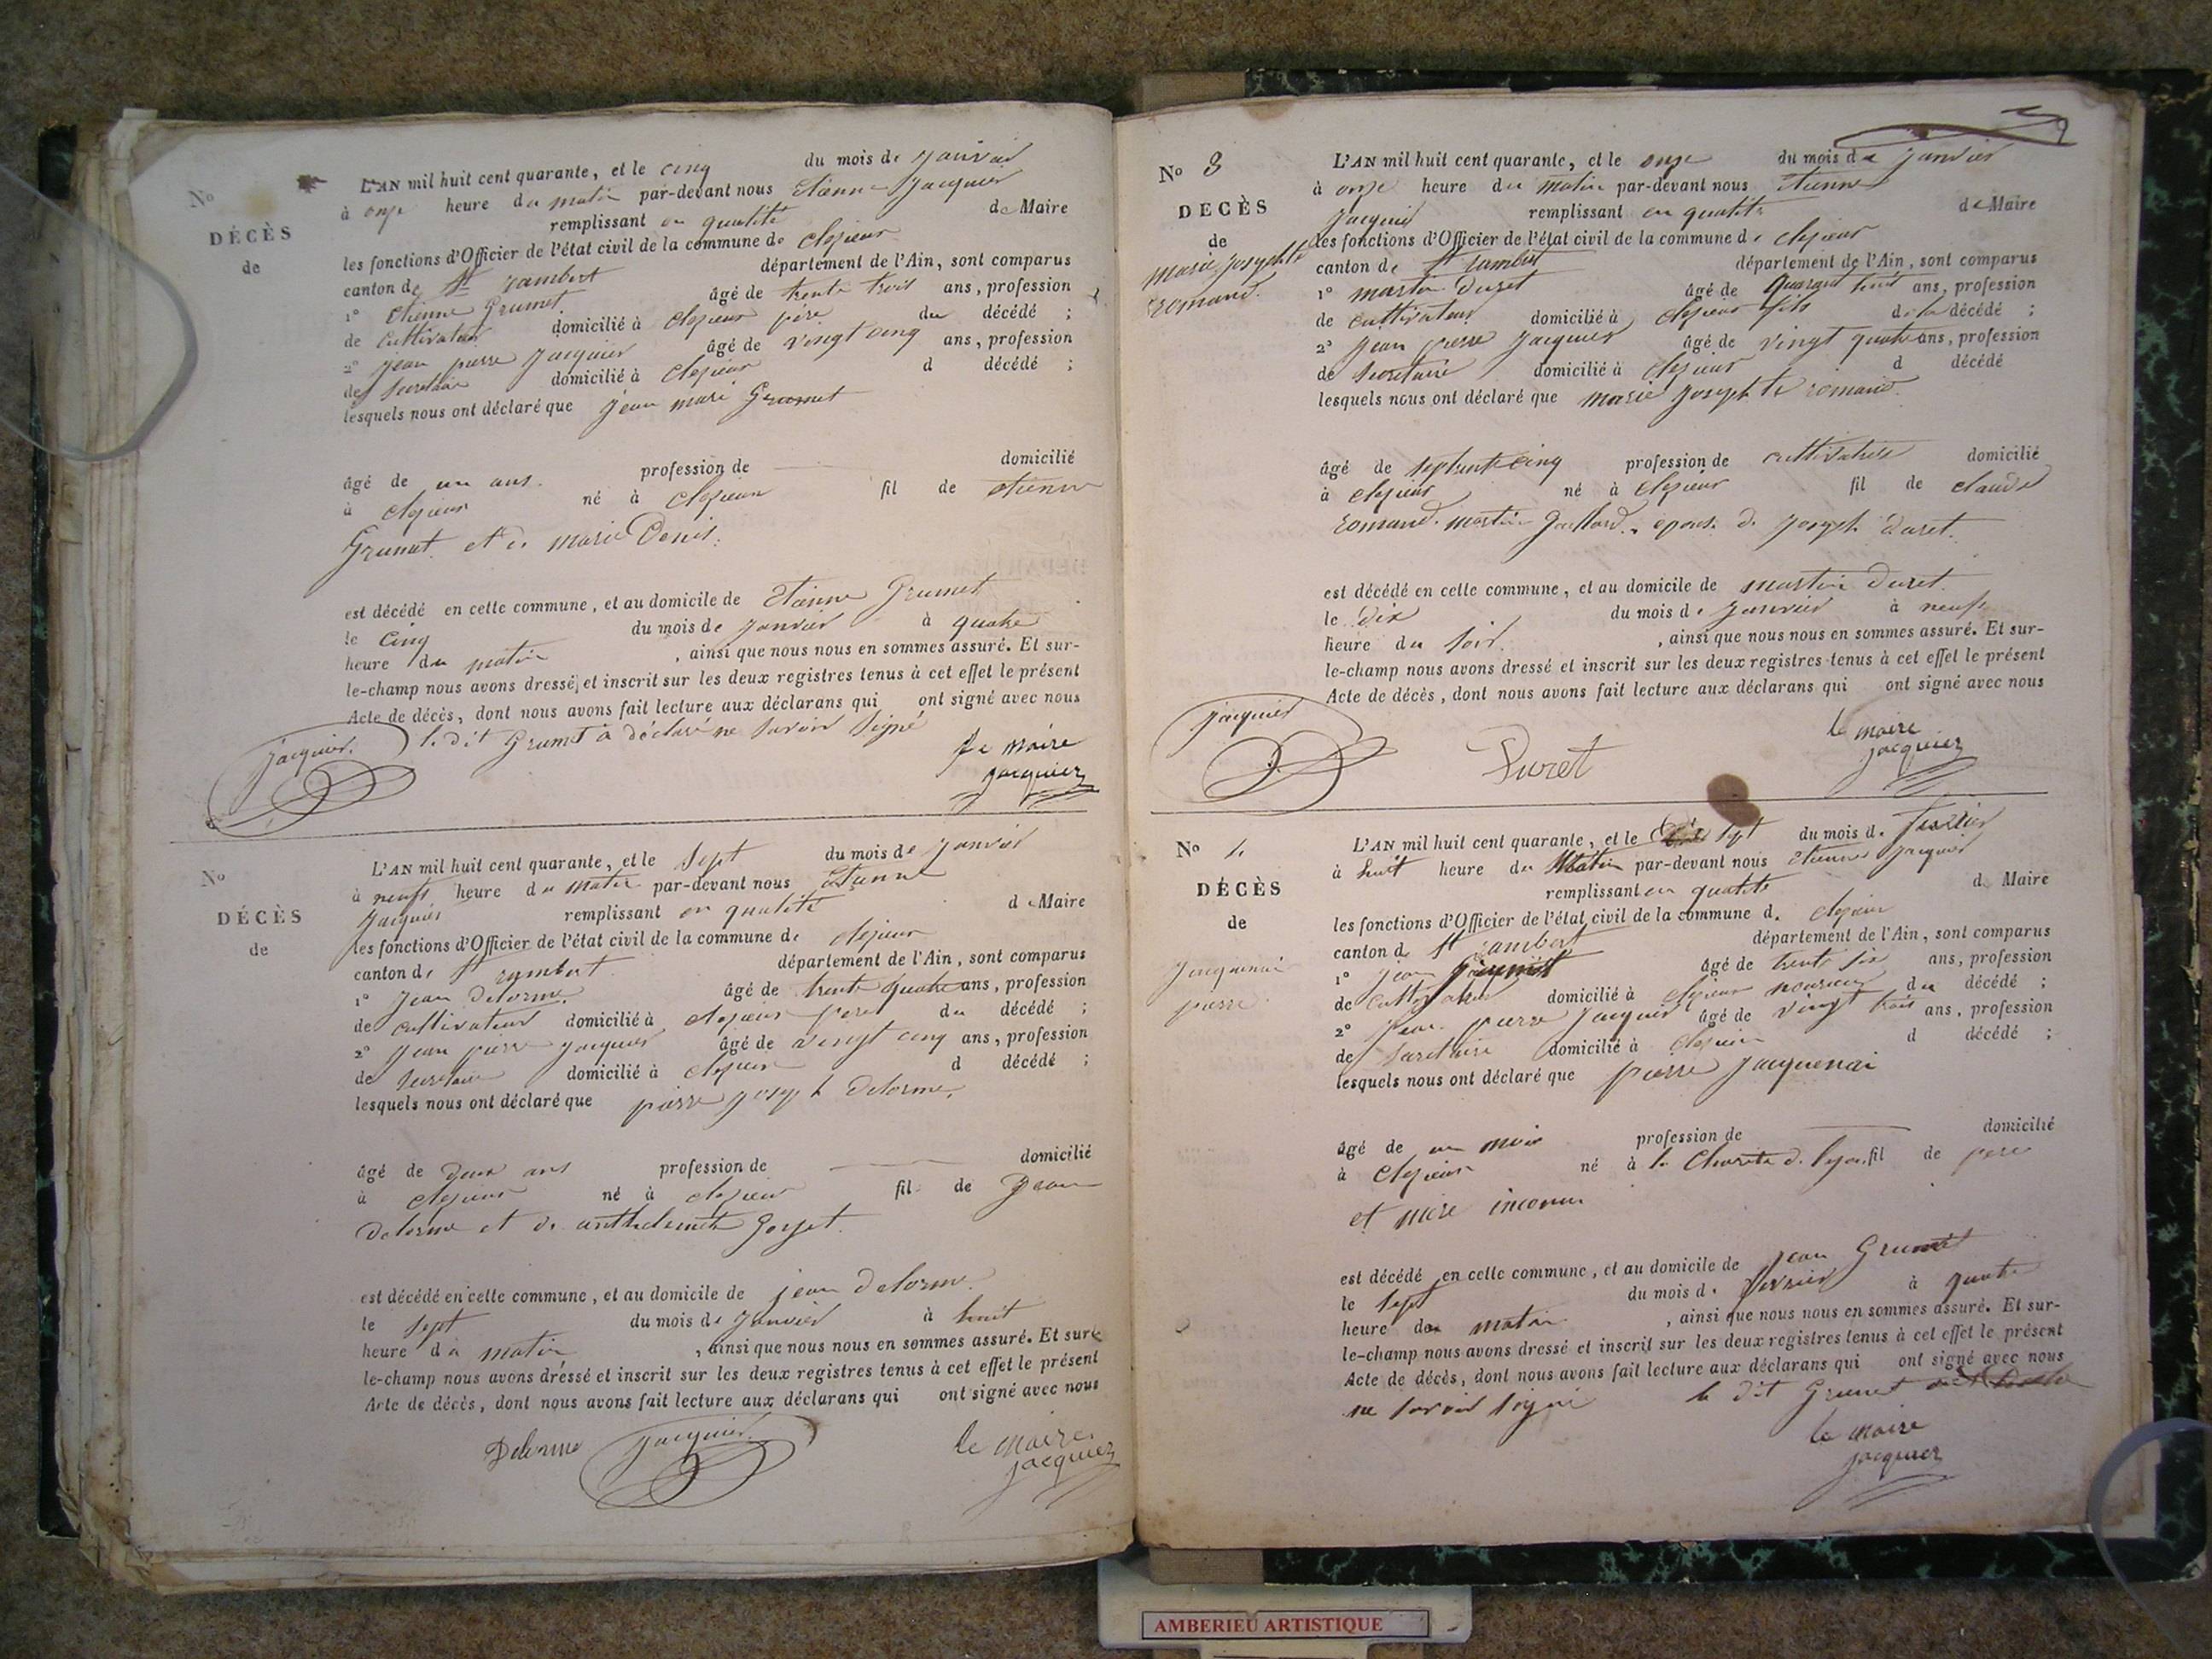 No
DÉCÈS
de
L'AN mil huit cent quarante, et le cinq du mois de janvier
à onze heure du matin par-devant nous etienne jacquier
remplissant en qualité de Maire
les fonctions d'Officier de l'état civil de la commune de clezieux
canton de St rambert département de l'Ain, sont comparus
1° Etienne Grumet âgé de trente trois ans, profession
de cultivateur domicilié à clezieux père du décédé ;
2° jean pierre jacquier âgé de vingt cinq ans, profession
de secretaire domicilié à clezieux d décédé ;
lesquels nous ont déclaré que jean marie Grumet
âgé de un ans. profession de domicilié
à clezieux né à clezieux fil de etienne
Grumet et de marie Denis.
est décédé en cette commune, et au domicile de Etienne Grumet
le cinq du mois de janvier à quatre
heure du matin , ainsi que nous nous en sommes assuré. Et sur-
le-champ nous avons dressé et inscrit sur les deux registres tenus à cet effet le présent
Acte de décès, dont nous avons fait lecture aux déclarans qui ont signé avec nous
le dit Grumet a déclaré ne savoir signé
jacquier. le maire
jacquier
No
DÉCÈS
de
L'AN mil huit cent quarante, et le sept du mois de janvier
à neuf heure du matin par-devant nous Etienne
jacquier remplissant en qualité de Maire
les fonctions d'Officier de l'état civil de la commune de clezieux
canton de St rambert département de l'Ain, sont comparus
1° jean delorme. âgé de trente quatre ans, profession
de cultivateur domicilié à clezieux pere du décédé ;
2° jean pierre jacquier âgé de vingt cinq ans, profession
de secretaire domicilié à clezieux d décédé ;
lesquels nous ont déclaré que pierre joseph delorme.
âgé de deux ans profession de domicilié
à clezieux né à clezieux fil de jean
delorme et de
est décédé en cette commune, et au domicile de jean delorme.
le sept du mois de janvier à huit
heure du matin , ainsi que nous nous en sommes assuré. Et sur-
le-champ nous avons dressé et inscrit sur les deux registres tenus à cet effet le présent
Acte de décès, dont nous avons fait lecture aux déclarans qui ont signé avec nous
Delorme jacquier. le maire
jacquier
No 3
DECÈS
de
marie josephte
romand.
L'AN mil huit cent quarante, et le onze du mois de janvier
à onze heure du matin par-devant nous etienne
jacquier remplissant en qualité de Maire
les fonctions d'Officier de l'état civil de la commune de clezieux
canton de St rambert département de l'Ain, sont comparus
1° martin duret âgé de quarant huit ans, profession
de cultivateur domicilié à clezieux fils de la décédé ;
2° jean pierre jacquier âgé de vingt quatre ans, profession
de secretaire domicilié à clezieux d décédé
lesquels nous ont déclaré que marie josephte romand.
âgé de septente cinq profession de cultivatrice domicilié
à clezieux né à clezieux fil de claude
romand. martin Gallard. epouse de joseph duret.
est décédé en cette commune, et au domicile de martin duret.
le dix du mois de janvier à neuf
heure du soir. , ainsi que nous nous en sommes assuré. Et sur-
le-champ nous avons dressé et inscrit sur les deux registres tenus à cet effet le présent
Acte de décès, dont nous avons fait lecture aux déclarans qui ont signé avec nous
jacquier Duret le maire
jacquier
No 4
DÉCÈS
de
jacquenai
pierre
L'AN mil huit cent quarante, et le sept du mois de fevrier
à huit heure du Matin par-devant nous etienne jacquier
remplissant en qualité de Maire
les fonctions d'Officier de l'état civil de la commune de clezieux
canton de St rambert département de l'Ain, sont comparus
1° jean âgé de trente six ans, profession
de cultivateur domicilié à clezieux nouricier du décédé ;
2° jean pierre jacquier âgé de vingt trois ans, profession
de secretaire domicilié à clezieux d décédé ;
lesquels nous ont déclaré que pierre jacquenai
âgé de un mois profession de domicilié
à clezieux né à la Charité de lyon fil de pere
et mere inconnu
est décédé en cette commune, et au domicile de jean Grumet
le sept du mois de fevrier à quatre
heure du matin , ainsi que nous nous en sommes assuré. Et sur-
le-champ nous avons dressé et inscrit sur les deux registres tenus à cet effet le présent
Acte de décès, dont nous avons fait lecture aux déclarans qui ont signé avec nous
ne savoir signé le dit Grumet
le maire
jacquier
AMBERIEU ARTISTIQUE